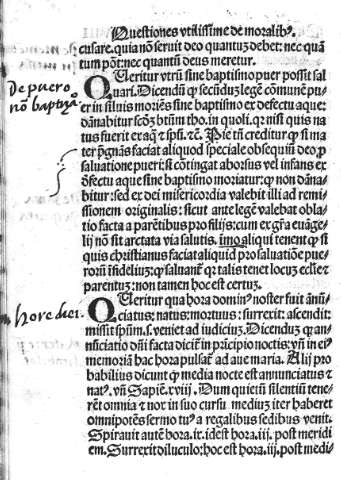 Questiones vtilissime de moralib⁹.
cusare. quia nō seruit deo quantuz debet: nec quā
tum pōt: nec quantū deus meretur.
De puero nō baptiza
Queritur vtrū sine baptismo puer possit sal
uari. Dicendū ꝙ secūduz legē cōmunē pu
er in siluis moriēs sine baptismo ex defectu aque:
dānabitur scdꝫ btūm tho. in quoli. qr nisi quis na
tus fuerit ex aq̄ ⁊ spū. ⁊c̄. Pie tn̄ creditur ꝙ si ma
ter p̄gnās faciat aliquod speciale obsequiū deo ꝓ
saluatione pueri: si cōtingat aborsus vel infans ex
defectu aque sine baptismo moriatur: ꝙ non dāna
bitur: sed ex dei misericordia valebit illi ad remis
sionem originalis: sicut ante legē valebat obla
tio facta a parētibus pro filijs: cum ex gr̄a euāge
lij nō sit arctata via salutis. imo aliqui tenent ꝙ si
quis christianus faciat aliquid pro saluatiōe pue
rorū īfideliuz: ꝙ saluant᷑ qr talis tenet locuz ecclie ⁊
parentuz: non tamen hoc est certuz.
hore diei.
Queritur qua hora domin⁹ noster fuit ānū
ciatus: natus: mortuus: surrexit: ascendit:
missit spm̄. s. veniet ad iudiciuz. Dicenduz ꝙ an
nūciatio dn̄i facta dicit᷑ in prīcipio noctis: vn̄ in ei⁹
memoriā hac hora pulsat᷑ ad aue maria. Alij pro
babilius dicunt ꝙ media nocte est annunciatus ⁊
nat⁹. vn̄ Sapiē. xviij. Dum quietū silentiū tene
rēt omnia ⁊ nox in suo cursu mediuz iter haberet
omnipotēs sermo tu⁹ a regalibus sedibus venit.
Spirauit autē hora. ix. id est hora. iij. post meridi
em. Surrexit diluculo: hoc est hora. iij. post medi-